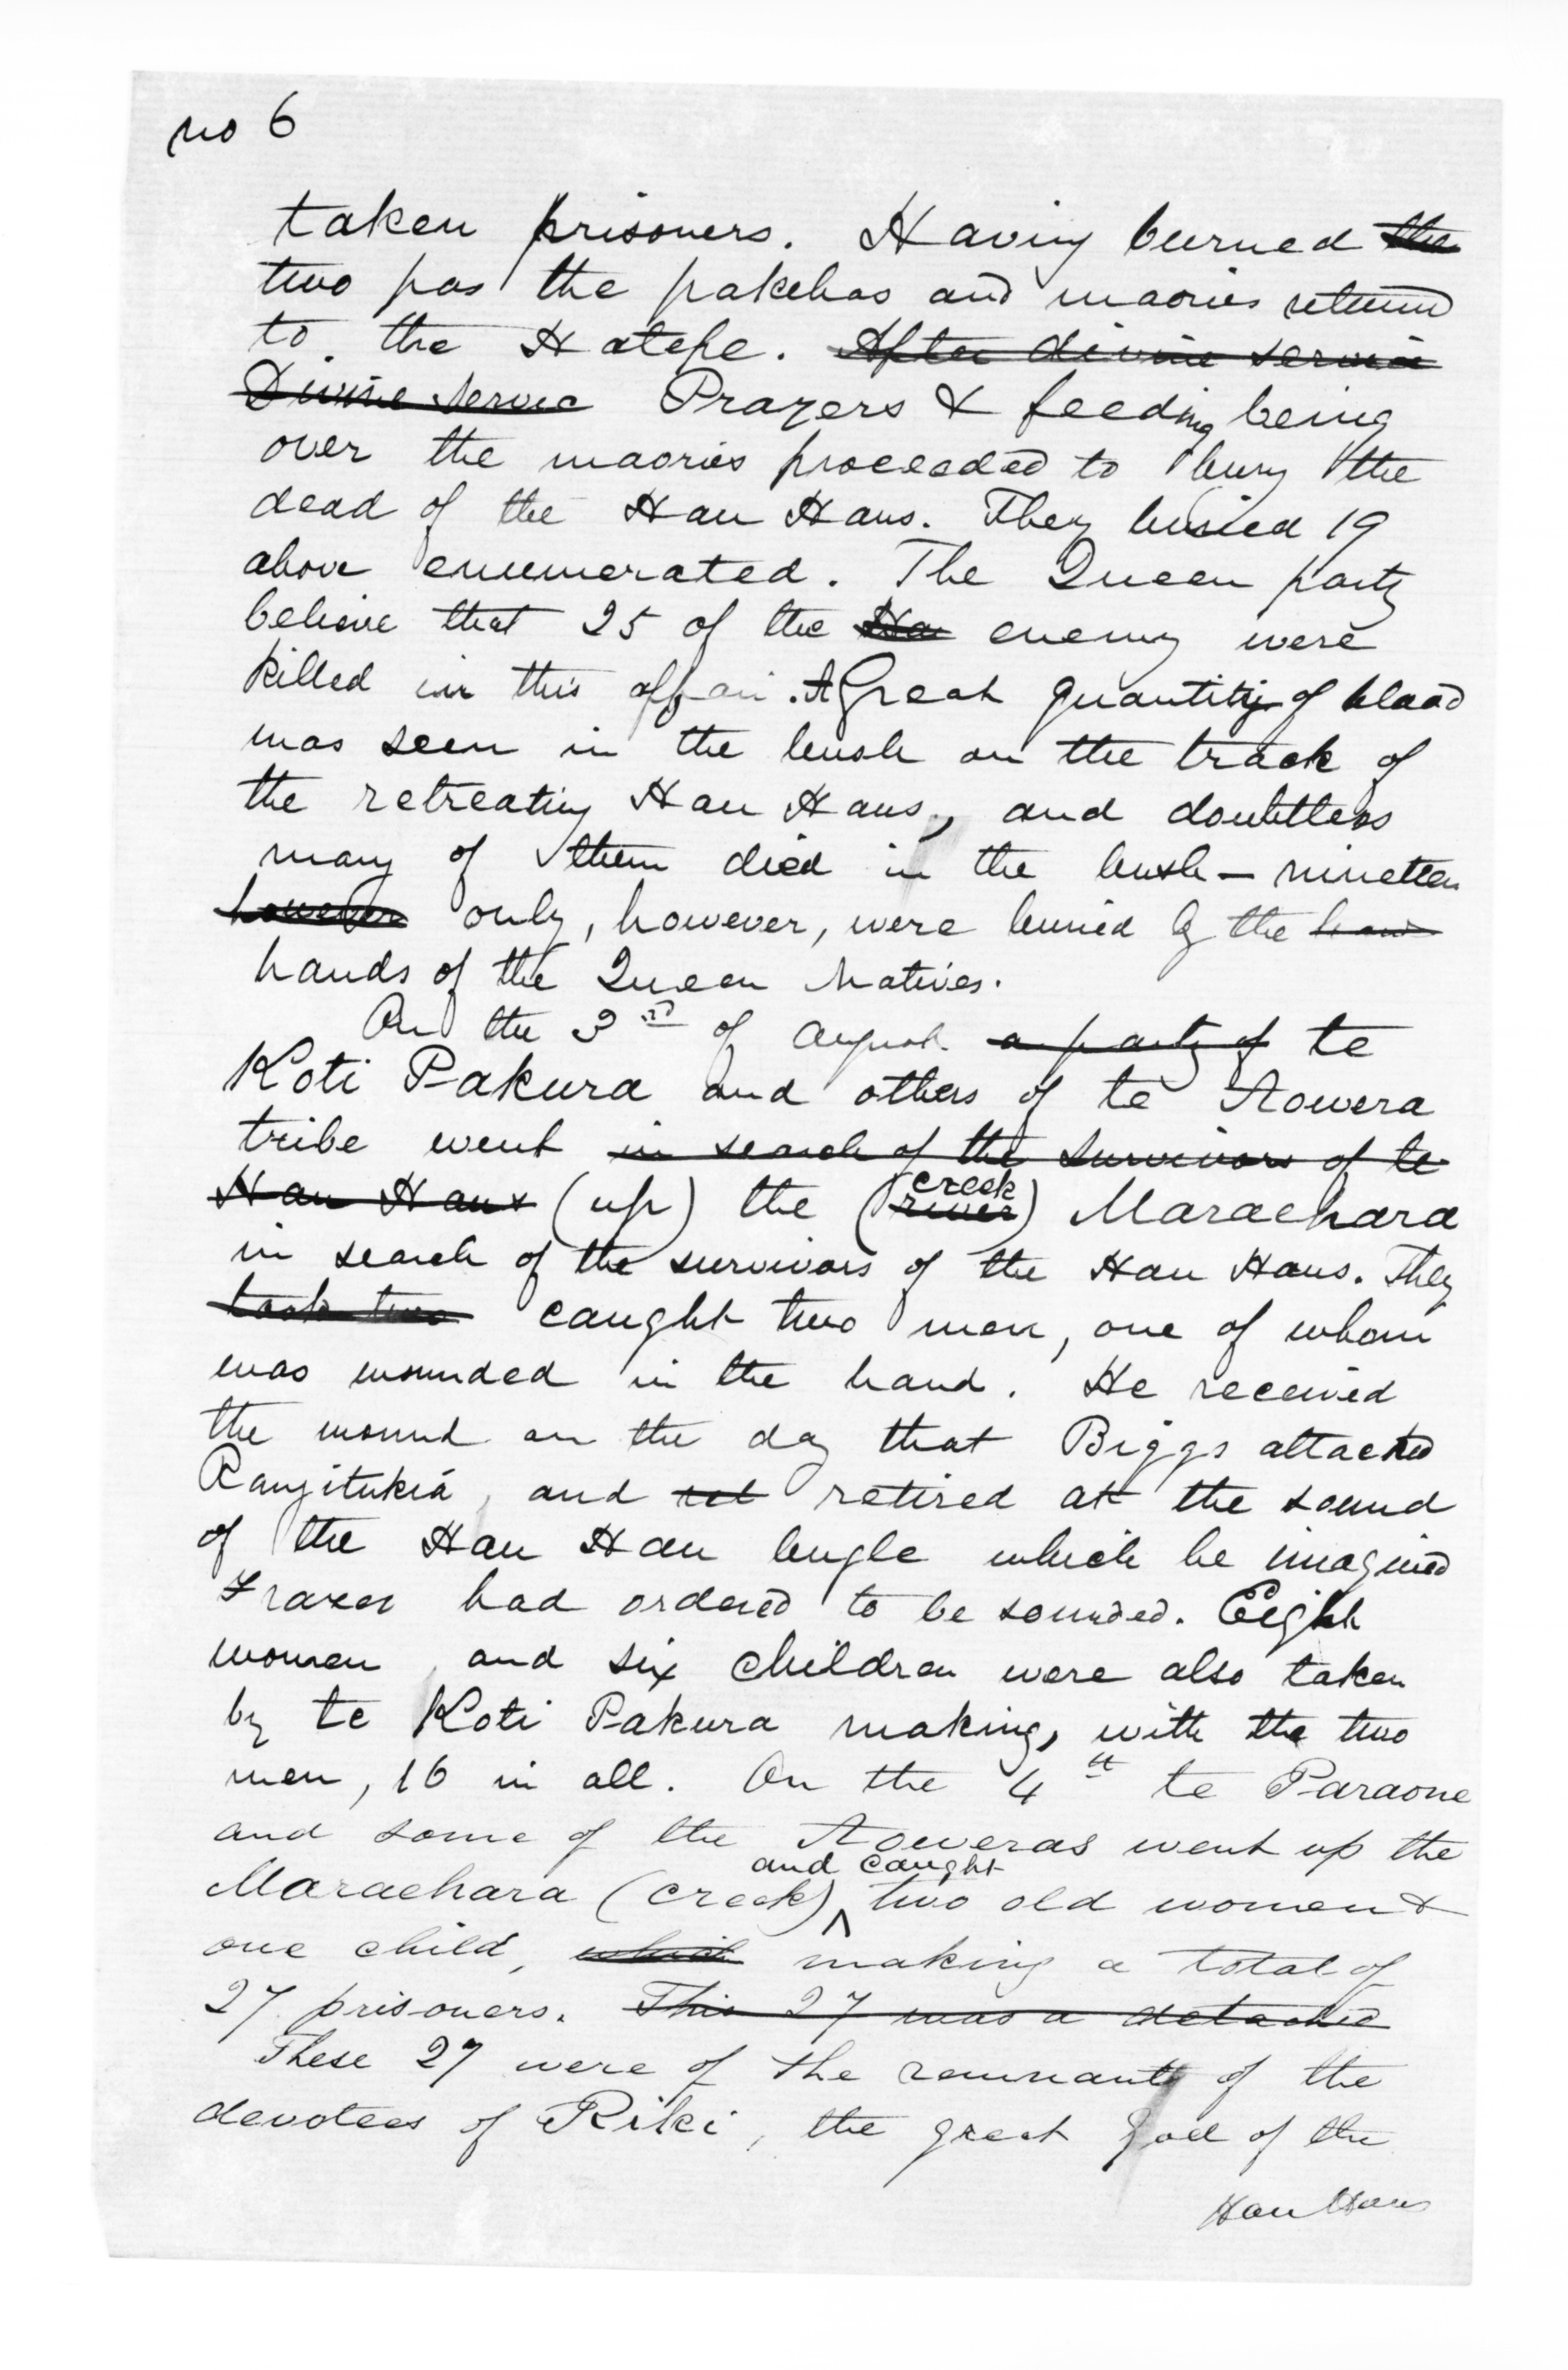 no 6
taken prisoners. Having burned the
two pas the pakehas and maories returned
to the Hatepe. After divine service
Divine service Prayers & feeding being
over the maories proceeded to bury the
dead of the Hau Haus. They buried 19
above enumerated. The Queen party
believe that 25 of the Ha enemy were
killed in this affair. A Great quantity of blood
was seen in the bush on the track of
the retreating Hau Haus, and doubtless
many of them died in the bush — nineteen
however only, however, were buried by the han
hands of the Queen Natives.
On the 3rd of August a party of te
Koti Pakura and others of te Aowera
tribe went in search of the survivors of te
Hau Haus (up) the (river creek) Maraehara
in search of the survivors of the Hau Haus. They
took two caught two men, one of whom
was wounded in the hand. He received
the wound on the day that Biggs attacked
Rangitukia, and ret retired at the sound
of the Hau Hau bugle which he imagined
Frazer had ordered to be sounded. Eight
women, and six children were also taken
by te Koti Pakura making, with the two
men, 16 in all. On the 4th te Paraone
and some of the Aoweras went up the
Maraehara (creek) and caught two old women &
one child, which making a total of
27 prisoners. This 27 was a detached
These 27 were of the remnants of the
devotees of Riki, the great God of the
Hau Haus